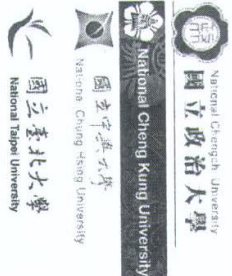 National Chengchi University
國立政治大學
National Cheng Kung University
國立中興大學
National Chung Hsing University
國立臺北大學
National Taipei University